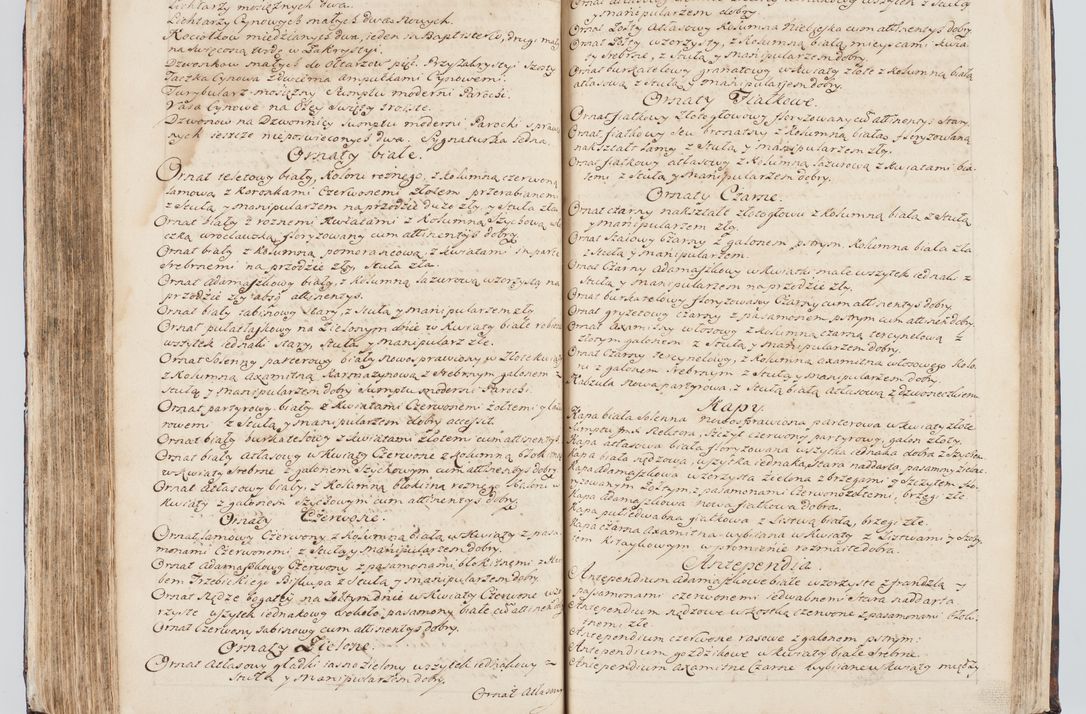 Lichtarzy mosiężnych dwa.
Lichtarzy Cynowych małych dwa nowych.
Kociołkow miedzianych dwa, ieden in Baptisterio, drugi mały
na święconą wodę w Zakrystyi.
Dzwonkow małych do Ołtarzow pięć. Przy Zakrystyi szosty
Taczka Cynowa z dwiema ampułkami Cynowemi.
Turybularz mosiężny Sumptu moderni Parochi.
Vasa Cynowe na Oleie Swięte troiste.
Dzwonow na Dzwonnicy Sumptu moderni Parochi spraw
nych sescze nieposwięconych dwa. Sygnaturka iedna.
Ornaty białe.
Ornat teletowy biały, koloru rożnego, z kolumną czerwoną
lamową z koronkami Czerwonemi złotem przerabianemi
z stułą y manipularzem na przodzie duże zły, y stuła zła
Ornat biały z rożnemi kwiatami z kolumną szychową
czką wrocławską floryzowany cum attinentys dobry
Ornat biały z kolumną pomeranczową, z kwiatami in parte
srebrnemi na przodzie zły, stuła zła.
Ornat adamaszkowy biały, z kolumną lazurową wzorzystą na
przodzie zły absq attinentys.
Ornat biały tabinowy stary, z stułą y manipularzem zły
Ornat pułatłaskowy na Zielonym dnie w kwiaty białe robiony
wszytek iednaki stary, stuła y manipularz złe.
Ornat Solenny parterowy biały nowo sprawiony w złote kwiaty
z kolumną axamitną karmazynową z srebrnym galonem z
stułą y manipularzem dobry Sumptu moderni Parochi.
Ornat partyrowy biały z kwiatami Czerwonemi żołtemi y lazu
rowemi z stułą y manipularzem dobry accessit.
Ornat biały burkatelowy z kwiatami złotemi cum attinentys
Ornat biały atłasowy w kwiaty Czerwone z kolumną błękitną
w kwiaty srebrne z galonem szychowym cum attinentys dobry.
Ornat atłasowy biały, z kolumną błękitną rożnego koloru w
kwiaty z galonem szychowym cum attinentys dobry.
Ornaty Czerwone.
Ornat lamowy Czerwony z kolumną białą w kwiaty z pasa-
monami Czerwonemi z stułą y manipularzem dobry.
Ornat adamaszkowy Czerwony z pasamonami błękitnemi z Her
bem Trzebickiego Biskupa z stułą y manipularzem dobry.
Ornat rządze bogaty na żołtym dnie w kwiaty Czerwone wzo
rzyste wszytek iednakowy około pasamony białe cum attinentys dobry
Ornat Czerwony tabinowy cum attinentys dobry.
Ornaty Zielone.
Ornat atłasowy gładki iasnozielony wszytek iednakowy z
stułą y manipularzem dobry.
Ornat Atłasowy
y manipularzem dobry.
Ornat żołty atłasowy kolumna Nieliczeyka cum attinentys dobry
Ornat żołty wzorzysty, z kolumną białą mieyscami kwia
ty srebrne, z stułą y manipularzem dobry.
Ornat burkatelowy granatowy w kwiaty złote z kolumną białą
atłasową z stułą y manipularzem dobry.
Ornaty Fiałkowe.
Ornat fiałkowy złotogłowowy floryzowany cum attinentys stary
Ornat fiałkowy seu brunatny z kolumną białą floryzowaną
nakształt lamy z stułą y manipularzem zły.
Ornat fiałkowy atłasowy z kolumną lazurową z kwiatami bia
łemi z stułą y manipularzem dobry.
Ornaty Czarne.
Ornat czarny nakształt złotogłowu z kolumną białą z stułą
y manipularzem zły.
Ornat szatowy czarny z galonem pstrym kolumna biała zła
z stułą y manipularzem.
Ornat Czarny adamaszkowy w kwiatki małe wszytek iednaki z
stułą y manipularzem na przodzie zły.
Ornat burkatelowy floryzowany Czarny cum attinentys dobry.
Ornat gryzetowy czarny z pasamonem pstrym cum attinentys dobry
Ornat axamitny włosowy z kolumną czarną tercynelową z
złotym galonem z stułą y manipularzem dobry.
Ornat Czarny tercynelowy, z kolumną axamitną włosową kolo
ni z galonem srebrnym z stułą y manipularzem dobry.
Kabzula nowa partyrowa z stułą białą atłasową z dzwoneczkiem
Kapy.
Kapa biała Solenna nowo sprawiona parterowa w kwiaty złote
Sumptu Jmci Rektora, szczyt czerwony partyrowy, galon złoty.
Kapa atłasowa biała floryzowana wszytka iednaka dobra z szychem
Kapa biała rządzowa, wszytka iednaka stara naddarta pasamony zielone
Kapa adamaszkowa wzorzysta zielona z brzegami y szczytem flo
ryzowanym żołtym z pasamonami Czerwono żołtemi, brzegi złe
Kapa adamaszkowa nowa fiałkowa dobra.
Kapa pułiedwabna fiałkowa z listwą białą, brzegi złe.
Kapa czarna axamitna wybijana w kwiaty z Listwami y szczy
tem kitaykowym w promienie rozmaite dobra
Antependia.
Antependium adamaszkowe białe wzorzyste z frandzlą y
pasamonami czerwonemi iedwabnemi stara naddarta
Antependium rządzowe w kostkę czerwone z pasamonami zielo
nemi złe.
Antependium czerwone rasowe z galonem pstrym.
Antependium gozdzikowe w kwiaty białe srebrne.
Antependium axamitne Czarne wybijane w kwiaty między